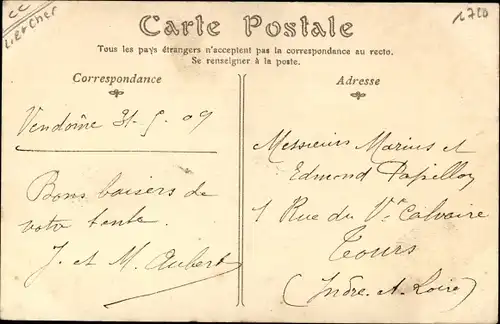 CC
Lir et Cher
Carte Postale
Tous les pays étrangers n'acceptent pas la correspondance au recto.
Se renseigner à la poste.
Correspondance
Vendôme 31-5-09
Bons baisers de
votre tante.
J. et M. Aubert
Adresse
Messieurs Marius et
Edmond Papillon
1 Rue du Vx Calvaire
Tours
(Indre-et-Loire)